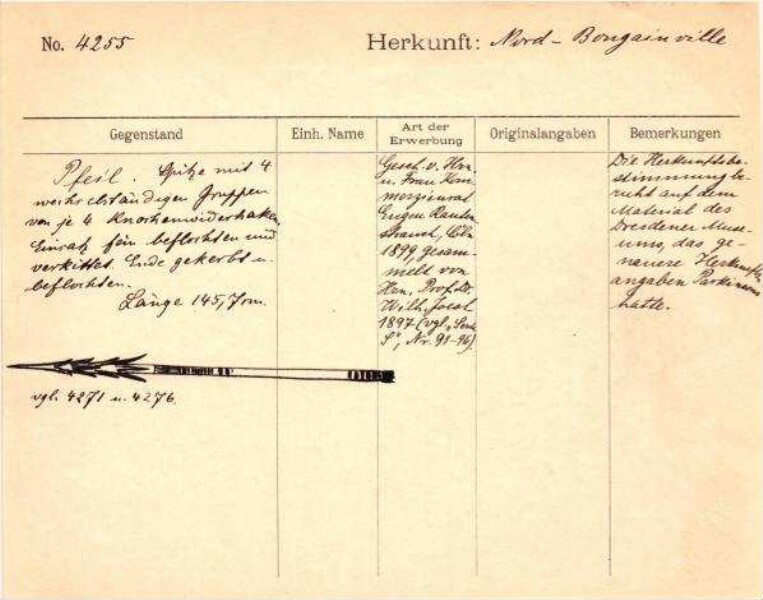 No. 4255
Herkunft: Nord-Bougainville
Gegenstand
Einh. Name
Art der
Erwerbung
Originalangaben
Bemerkungen
Pfeil. Spitze mit 4
wechselständigen Gruppen
von je 4 Knochenwiderhaken,
Einsatz fein beflochten und
verkittet. Ende gekerbt u.
beflochten.
Länge 145,7 cm.
vgl. 4271 u. 4276.
Gesch. v. Hrn.
u. Frau Kom-
merzienrat
Eugen Rauten-
strauch, Cöln
1899, gesam-
melt von
Hrn. Prof. Dr.
Wilh. Joest
1897 (vgl.
S", Nr. 91-96).
Die Herkunftsbe-
stimmung be-
ruht auf dem
Material des
Dresdener Muse-
ums, das ge-
nauere Herkunfts-
angaben Parkinsons
hatte.